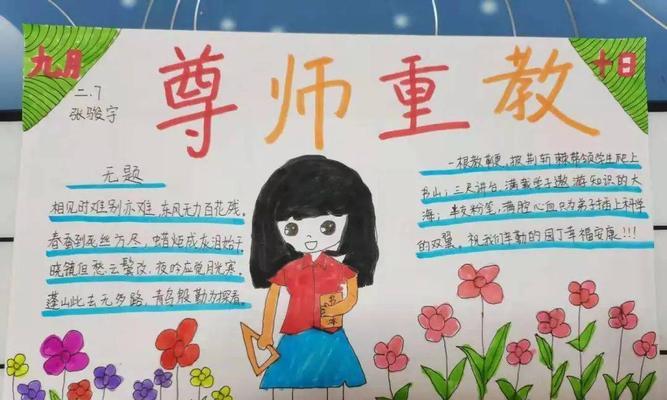 九月
尊师重教
十日
二.7
张骏宇
无题
相见时难别亦难,东风无力百花残。
春蚕到死丝方尽,蜡炬成灰泪始干
晓镜但愁云鬓改,夜吟应觉月光寒。
蓬山此去无多路,青鸟殷勤为探看。
一根教鞭,披荆斩棘带领学生爬上
书山;三尺讲台,满载学子遨游知识的大
海;半支粉笔,满腔心血只为弟子插上科学
的双翼。祝我们辛勤的园丁幸福安康!!!
书本